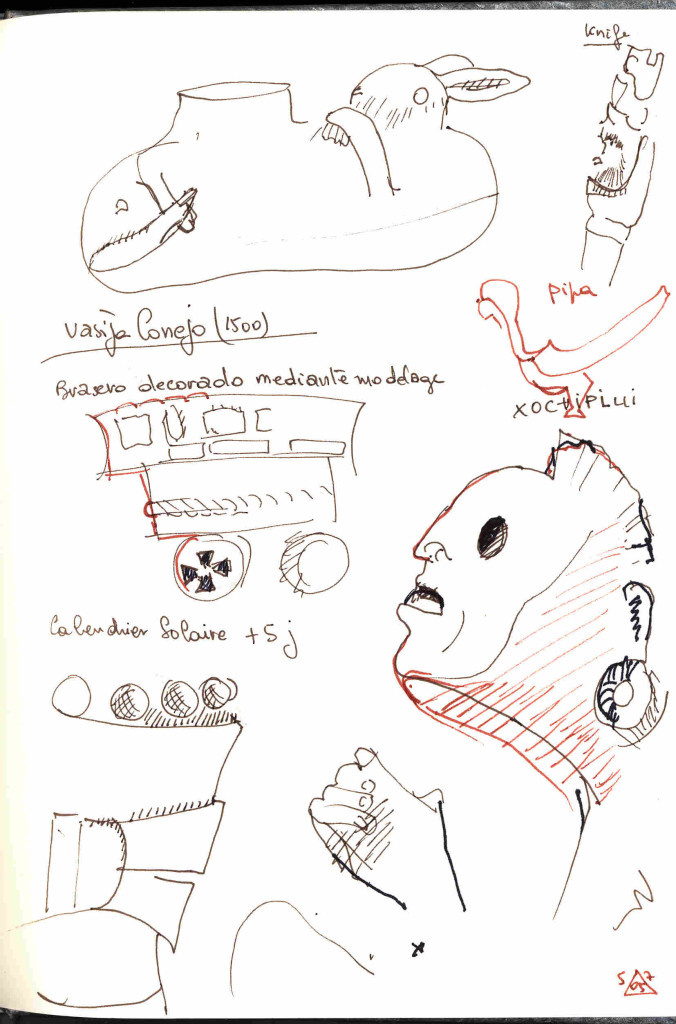 Knife
Vasija Conejo (1500)
Pipa
Brasero decorado mediante modelage
XOCHIPLUI
Calendrier Solaire + 5 j
5 05 7